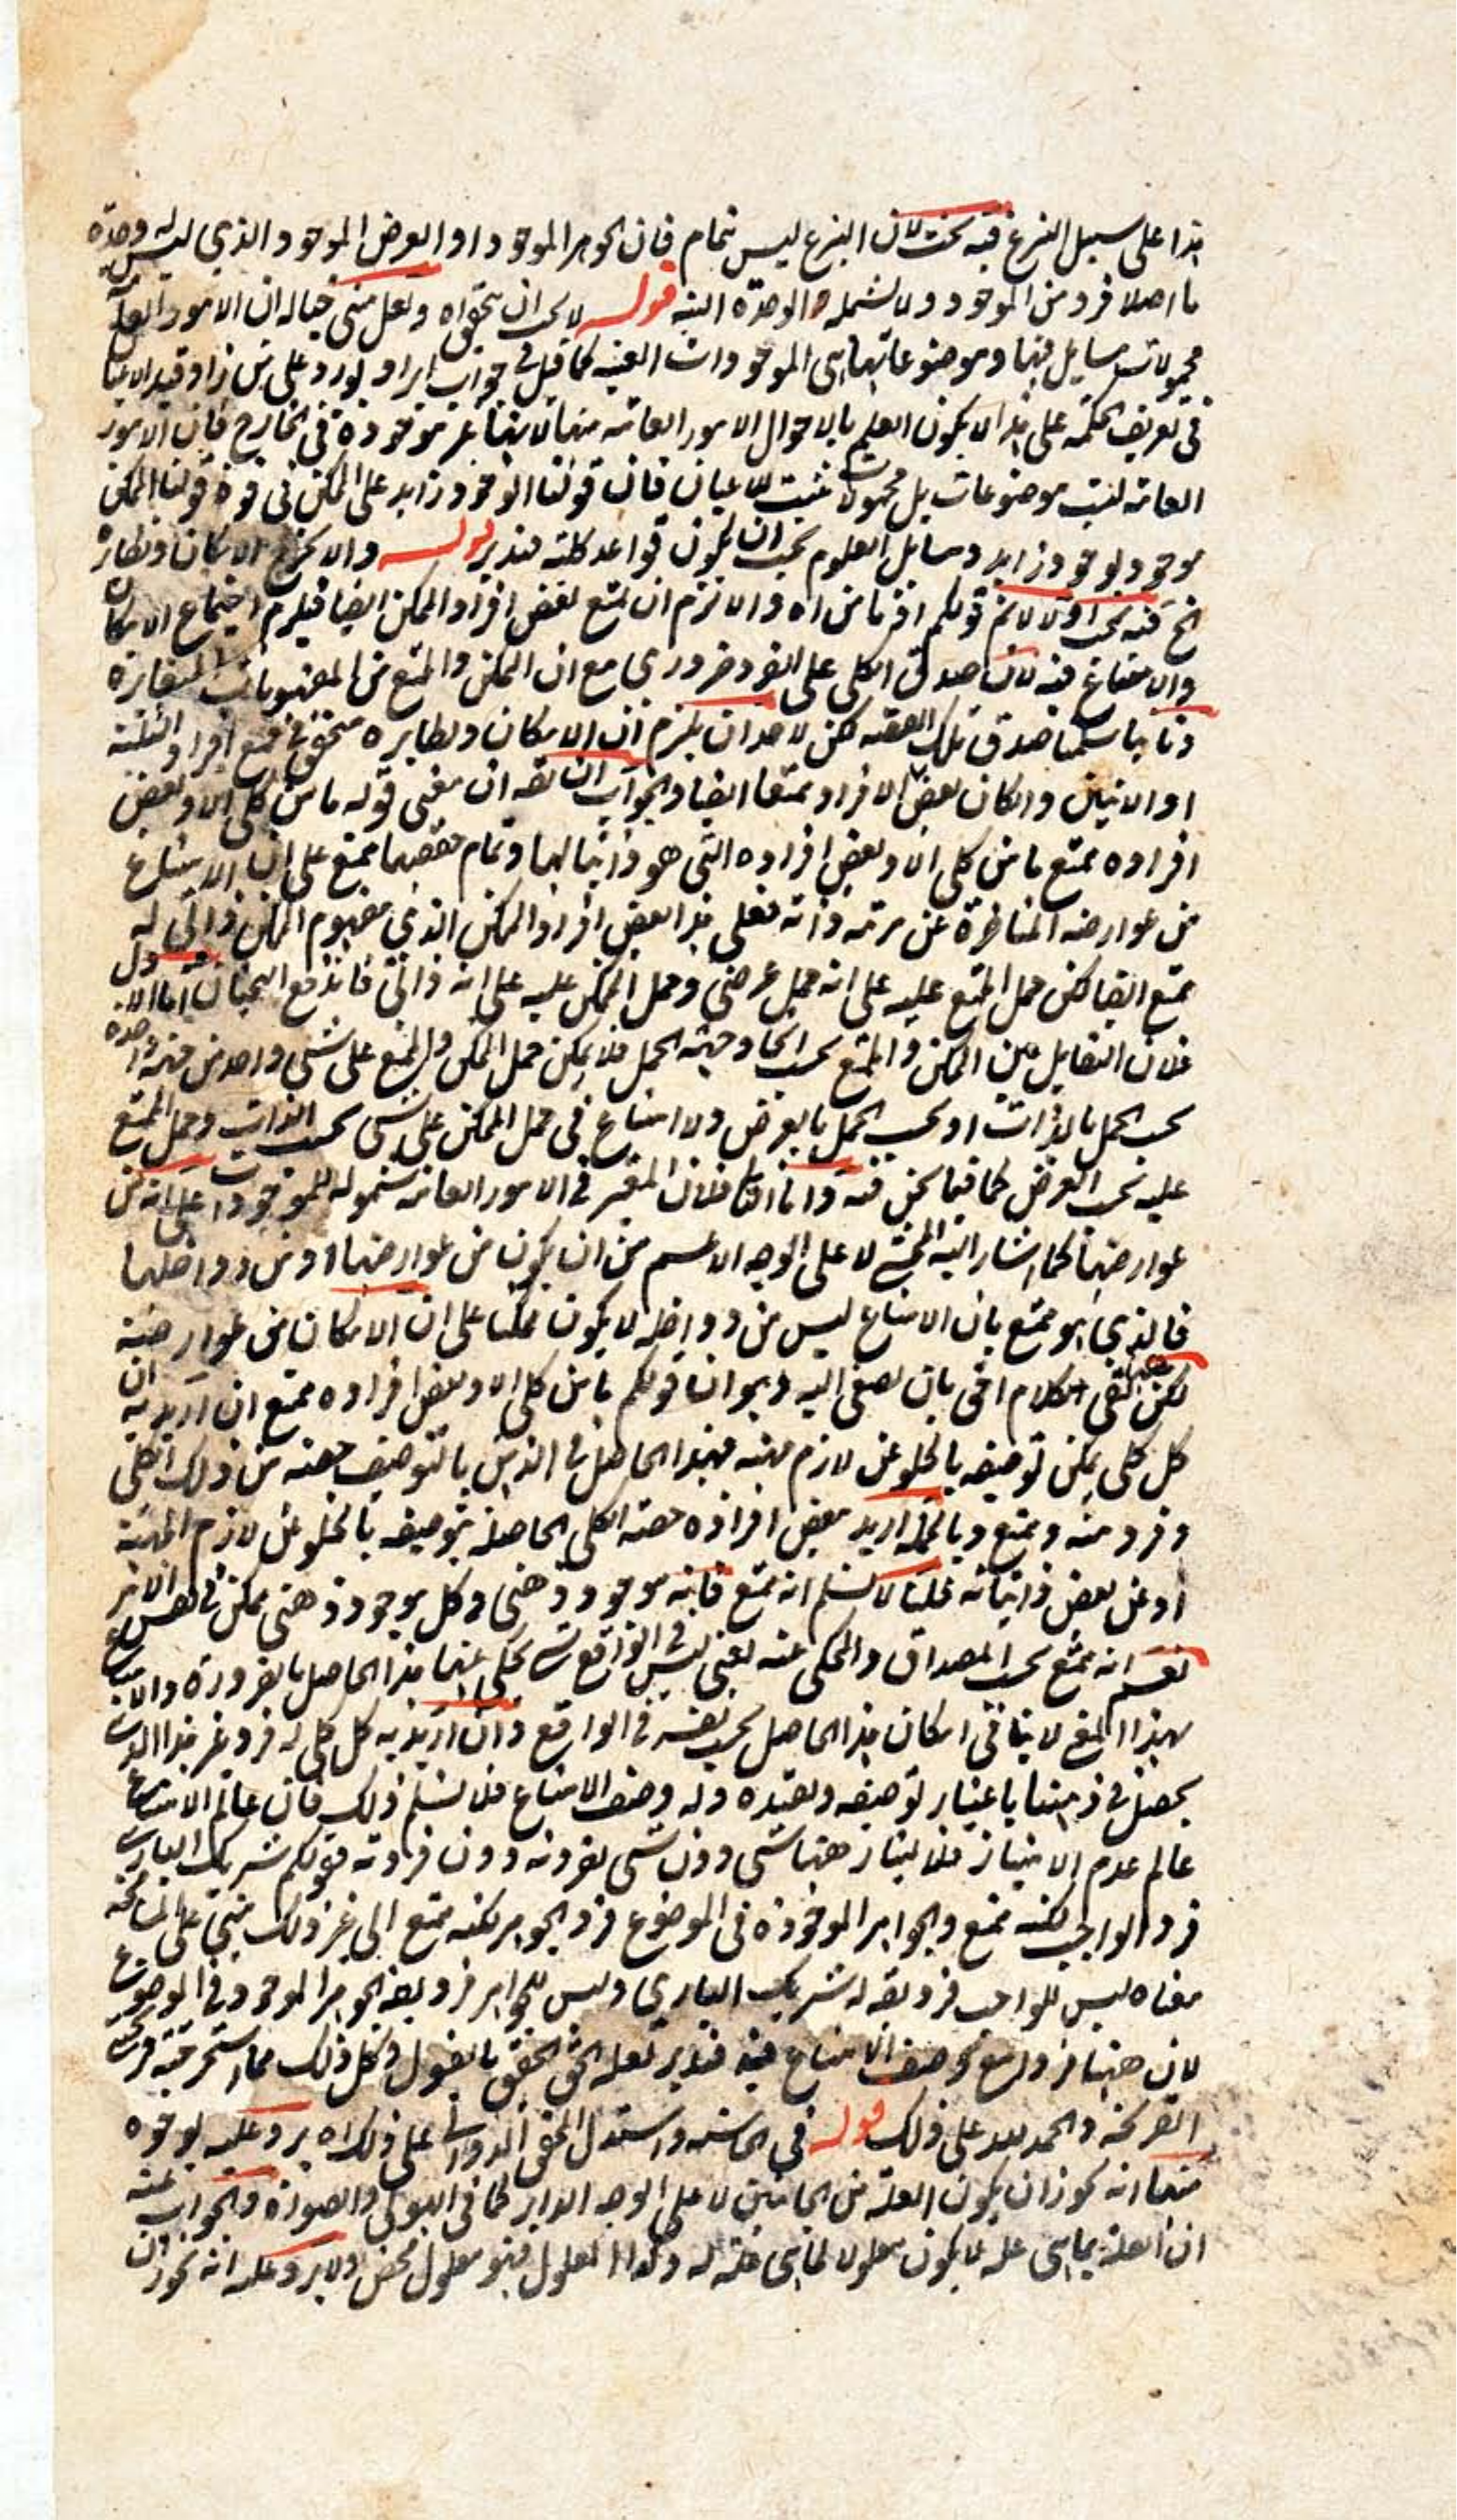 هذا على سبيل التبرع فيه بحث لان التبرع ليس بتمام فان الجوهر الموجود او العرض الموجود الذي ليس له وحدة
ما اصلا فرد من الموجود ولا تشمله الوحدة البتة قوله لا يجب ان اه ولعل منشى خياله ان الامور العامة
محمولات مسايل فيها وموضوعاتها هى الموجودات العينية كما قيل في جواب ايراد يورد على من زاد قيد الاعيان
فى تعريف الحكمة على هذا لا يكون العلم بالاحوال الامور العامه منها لانها غير موجودة فى الخارج فان الامور
العامه ليست موضوعات بل محمولات تثبت للاعيان فان قولنا الوجود زايد على الممكن فى قوة قولنا الممكن
موجود بوجود زايد ومسايل العلوم يجب ان يكون قواعد كلية فتدبر قوله والا يخرج الامكان ونظايره
الخ فيه بحث اولا لانم قولكم اذ ما من اه والا لزم ان يمتنع بعض افراد الممكن ايضا فيلزم اجتماع الامكان
والامتناع فيه لان صدق الكلى على الفرد ضرورى مع ان الممكن والممتنع من المفهومات المتغايرة
وثانيا سلمنا صدق تلك القضية لكن لاحد ان يلزم ان الامكان ونظايره متحقق في جميع افراد الثلثة
او الاثنين وان كان بعض الافراد ممتنعا ايضا والجواب ان يقه ان معنى قوله ما من كلى الا وبعض
افراده ممتنع ما من كلى الا وبعض افراده التى هو ذاتيا لها وتمام حقيقتها ممتنع على ان الامتناع
من عوارضه المتاخرة عن مرتبة ذاته فعلى هذا بعض افراد الممكن الذي مفهوم الممكن ذاتى له
ممتنع ايضا لكن حمل الممتنع عليه على انه حمل عرضى وحمل الممكن عليه على انه ذاتى فاندفع البحثان اما الاول
فلان التقابل بين الممكن والممتنع بحسب اتحاد جهة الحمل فلا يمكن حمل الممكن والممتنع على شى واحد من جهة واحدة
بحسب الحمل بالذات او بحسب الحمل بالعرض ولا امتناع فى حمل الممكن على شى بحسب الذات وحمل الممتنع
عليه بحسب العرض كما فيما نحن فيه واما الثانى فلان المعتبر في الامور العامه شموله للموجودات على انه من
عوارضها كما اشار اليه المحشى لا على الوجه الاعم من ان يكون من عوارضها او من ذو اخلها
فالذى هو ممتنع بان الامتناع ليس من دواخله لا يكون ممكنا على ان الامكان من عوارضه
لكن بقى الكلام فى بان يصغى اليه وهو ان قولكم ما من كلى الا وبعض افراده ممتنع ان اريد به ان
كل كلى يمكن توصيفه بالخلو عن لازم مهيته فهذا الحاصل في الذهن بالتوصيف حصته من ذلك الكلى
وفرد منه وممتنع وبالجملة اريد ببعض افراده حصته الكلى الحاصلة بتوصيفه بالخلو عن لازم المهية
او عن بعض ذاتياته فحينئذ لا نسلم انه ممتنع فانه موجود ذهنى وكل موجود ذهنى ممكن في نفس الامر
نعم انه ممتنع بحسب المصداق والمحكى عنه يعنى ليس في الواقع شى يحكى عنها هذا الحاصل بالضرورة والامتناع
بهذا المعنى لا ينافى امكان هذا الحاصل بحسب نفسه في الواقع وان اريد به كل كلى له فرد غير هذا الذى
يحصل في ذهننا باعتبار توصيفه وتقييده وله وصف الامتناع فلا نسلم ذلك فان عالم الامتناع
عالم عدم الامتياز فلا يمتاز ههنا شى دون شى بفرديته دون فرديته قولكم شريك البارى
فرد الواجب لكنه ممتنع والجواهر الموجودة فى الموضوع فرد الجوهر لكنه ممتنع الى غير ذلك مبنى على المسامحة
معناه ليس للواجب فرد يقه له شريك البارى وليس للجواهر فرد يقه الجوهر الموجود فى الموضوع
لان ههنا فردا مع وصف الامتناع فيه فتدبر لعله الحق الحقيق بالقبول وكل ذلك مما استخرجته قريحتى
القريحة والحمد لله على ذلك قوله في الحاشيه واستدل المحقق الدوانى على ذلك اه يرد عليه بوجوه
منها انه يجوز ان يكون العلة من الجانبين لا على الوجه الداير كما فى الهيولى والصورة والجواب عنه
ان العلة بما هى علة لا يكون معلولا لما هى علة له وكذا المعلول فهو معلول محض ولا يرد عليه انه يجوز ان